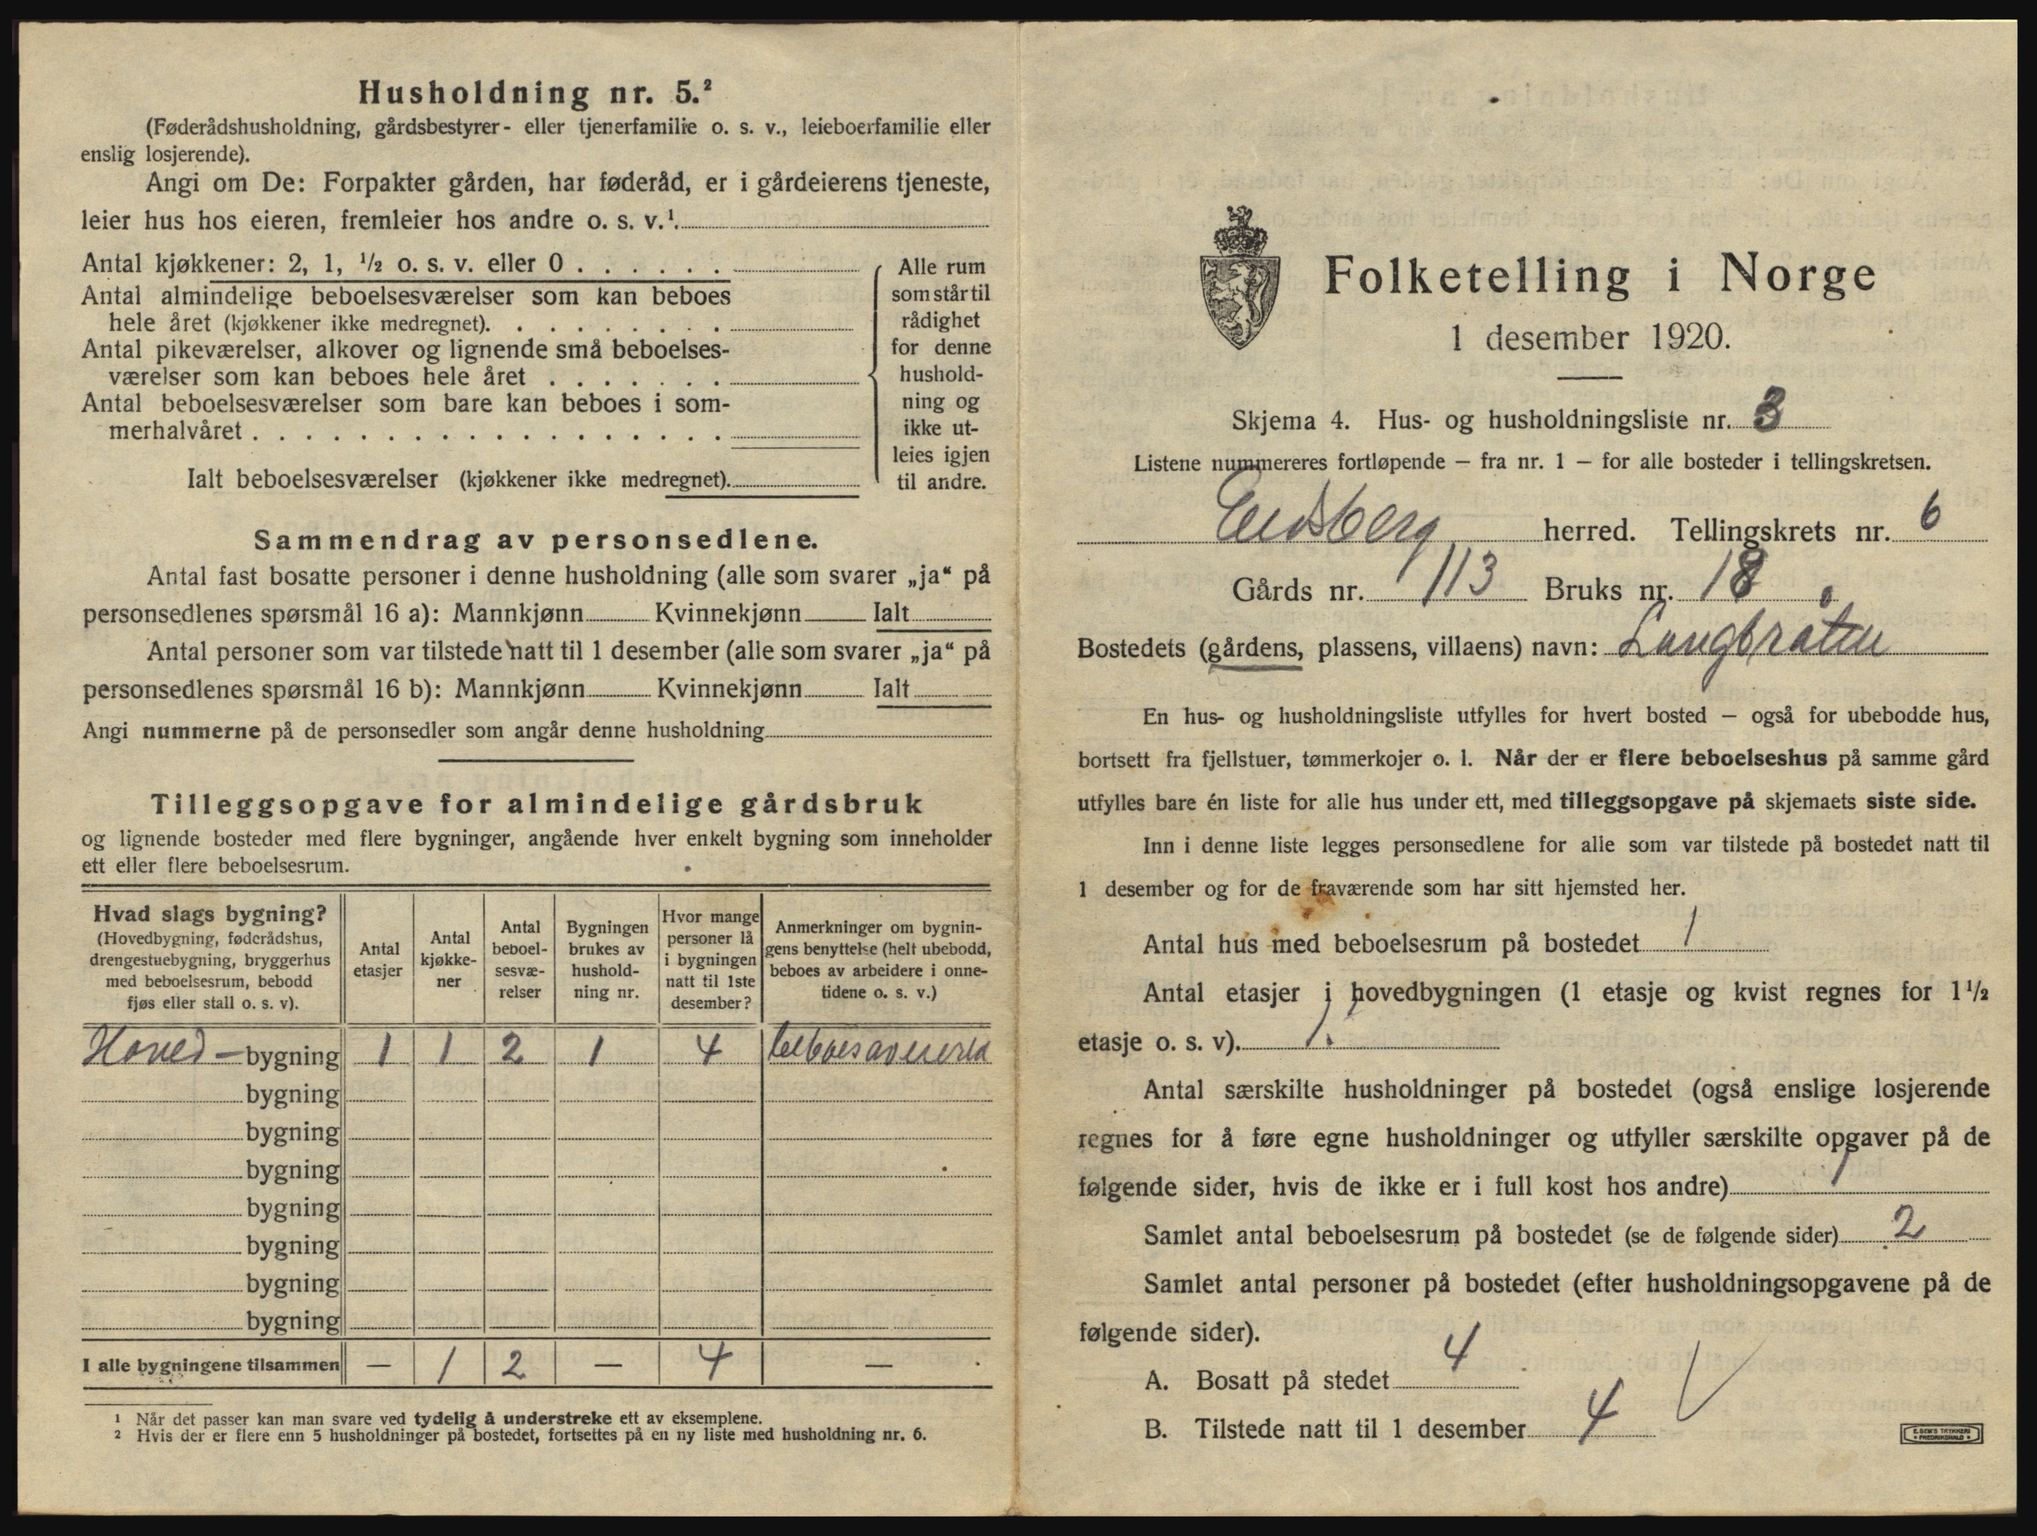 Husholdning nr. 5.²
(Føderådshusholdning, gårdsbestyrer- eller tjenerfamilie o. s. v., leieboerfamilie eller
enslig losjerende).
Angi om De: Forpakter gården, har føderåd, er i gårdeierens tjeneste,
leier hus hos eieren, fremleier hos andre o. s. v.¹.
Antal kjøkkener: 2, 1, ½ o. s. v. eller 0 . . . . . .
Antal almindelige beboelsesværelser som kan beboes
hele året (kjøkkener ikke medregnet). . . . . . . . .
Antal pikeværelser, alkover og lignende små beboelses-
værelser som kan beboes hele året . . . . . . .
Antal beboelsesværelser som bare kan beboes i som-
merhalvåret . . . . . . . . . . . . . . . . .
Ialt beboelsesværelser (kjøkkener ikke medregnet).
Alle rum
som står til
rådighet
for denne
hushold-
ning og
ikke ut-
leies igjen
til andre.
Sammendrag av personsedlene.
Antal fast bosatte personer i denne husholdning (alle som svarer „ja“ på
personsedlenes spørsmål 16 a): Mannkjønn Kvinnekjønn Ialt
Antal personer som var tilstede natt til 1 desember (alle som svarer „ja“ på
personsedlenes spørsmål 16 b): Mannkjønn Kvinnekjønn Ialt
Angi nummerne på de personsedler som angår denne husholdning
Tilleggsopgave for almindelige gårdsbruk
og lignende bosteder med flere bygninger, angående hver enkelt bygning som inneholder
ett eller flere beboelsesrum.
Hvad slags bygning?
(Hovedbygning, føderådshus,
drengestuebygning, bryggerhus
med beboelsesrum, bebodd
fjøs eller stall o. s. v).
Antal
etasjer
Antal
kjøkke-
ner
Antal
beboel-
sesvæ-
relser
Bygningen
brukes av
hushold-
ning nr.
Hvor mange
personer lå
i bygningen
natt til 1ste
desember?
Anmerkninger om bygnin-
gens benyttelse (helt ubebodd,
beboes av arbeidere i onne-
tidene o. s. v.)
Hoved-bygning 1 1 2 1 4 beboes av
bygning
bygning
bygning
bygning
bygning
bygning
bygning
I alle bygningene tilsammen — 1 2 — 4 —
¹ Når det passer kan man svare ved tydelig å understreke ett av eksemplene.
² Hvis der er flere enn 5 husholdninger på bostedet, fortsettes på en ny liste med husholdning nr. 6.
Folketelling i Norge
1 desember 1920.
Skjema 4. Hus- og husholdningsliste nr. 3
Listene nummereres fortløpende – fra nr. 1 – for alle bosteder i tellingskretsen.
Eidsberg herred. Tellingskrets nr. 6
Gårds nr. 113 Bruks nr. 18
Bostedets (gårdens, plassens, villaens) navn: Langbråten
En hus- og husholdningsliste utfylles for hvert bosted – også for ubebodde hus,
bortsett fra fjellstuer, tømmerkojer o. l. Når der er flere beboelseshus på samme gård
utfylles bare én liste for alle hus under ett, med tilleggsopgave på skjemaets siste side.
Inn i denne liste legges personsedlene for alle som var tilstede på bostedet natt til
1 desember og for de fraværende som har sitt hjemsted her.
Antal hus med beboelsesrum på bostedet 1
Antal etasjer i hovedbygningen (1 etasje og kvist regnes for 1½
etasje o. s. v). 1.
Antal særskilte husholdninger på bostedet (også enslige losjerende
regnes for å føre egne husholdninger og utfyller særskilte opgaver på de
følgende sider, hvis de ikke er i full kost hos andre) 1
Samlet antal beboelsesrum på bostedet (se de følgende sider) 2
Samlet antal personer på bostedet (efter husholdningsopgavene på de
følgende sider).
A. Bosatt på stedet 4
B. Tilstede natt til 1 desember 4
E. SEM'S TRYKKERI
FREDRIKSHALD